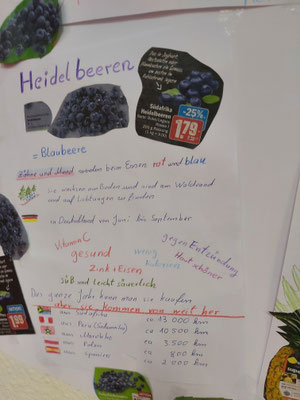 Heidelbeeren
Südafrika
Heidelbeeren
-25%
1.79
= Blaubeere
Zähne und Mund werden beim Essen rot und blau
sie wachsen am Boden und sind am Waldrand
und auf Lichtungen zu finden
in Deutschland von Juni bis September
Vitamin C
gesund
Zink + Eisen
wenig
Kalorien
gegen Entzündung
Haut schöner
süß und leicht säuerlich
Das ganze Jahr kann man sie kaufen
aber sie kommen von weit her
aus Südafrika ca 13 000 km
aus Peru (Südamerika) ca 10 500 km
aus Marokko ca 3.500 km
aus Polen ca 800 km
aus Spanien ca 2 000 km
1.99